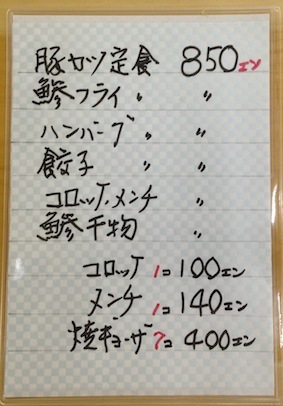 豚カツ定食 850エン
鯵フライ 〃 〃
ハンバーグ 〃 〃
餃子 〃 〃
コロッケ.メンチ 〃
鯵干物 〃
コロッケ 1コ 100エン
メンチ 1コ 140エン
焼ギョーザ 7コ 400エン